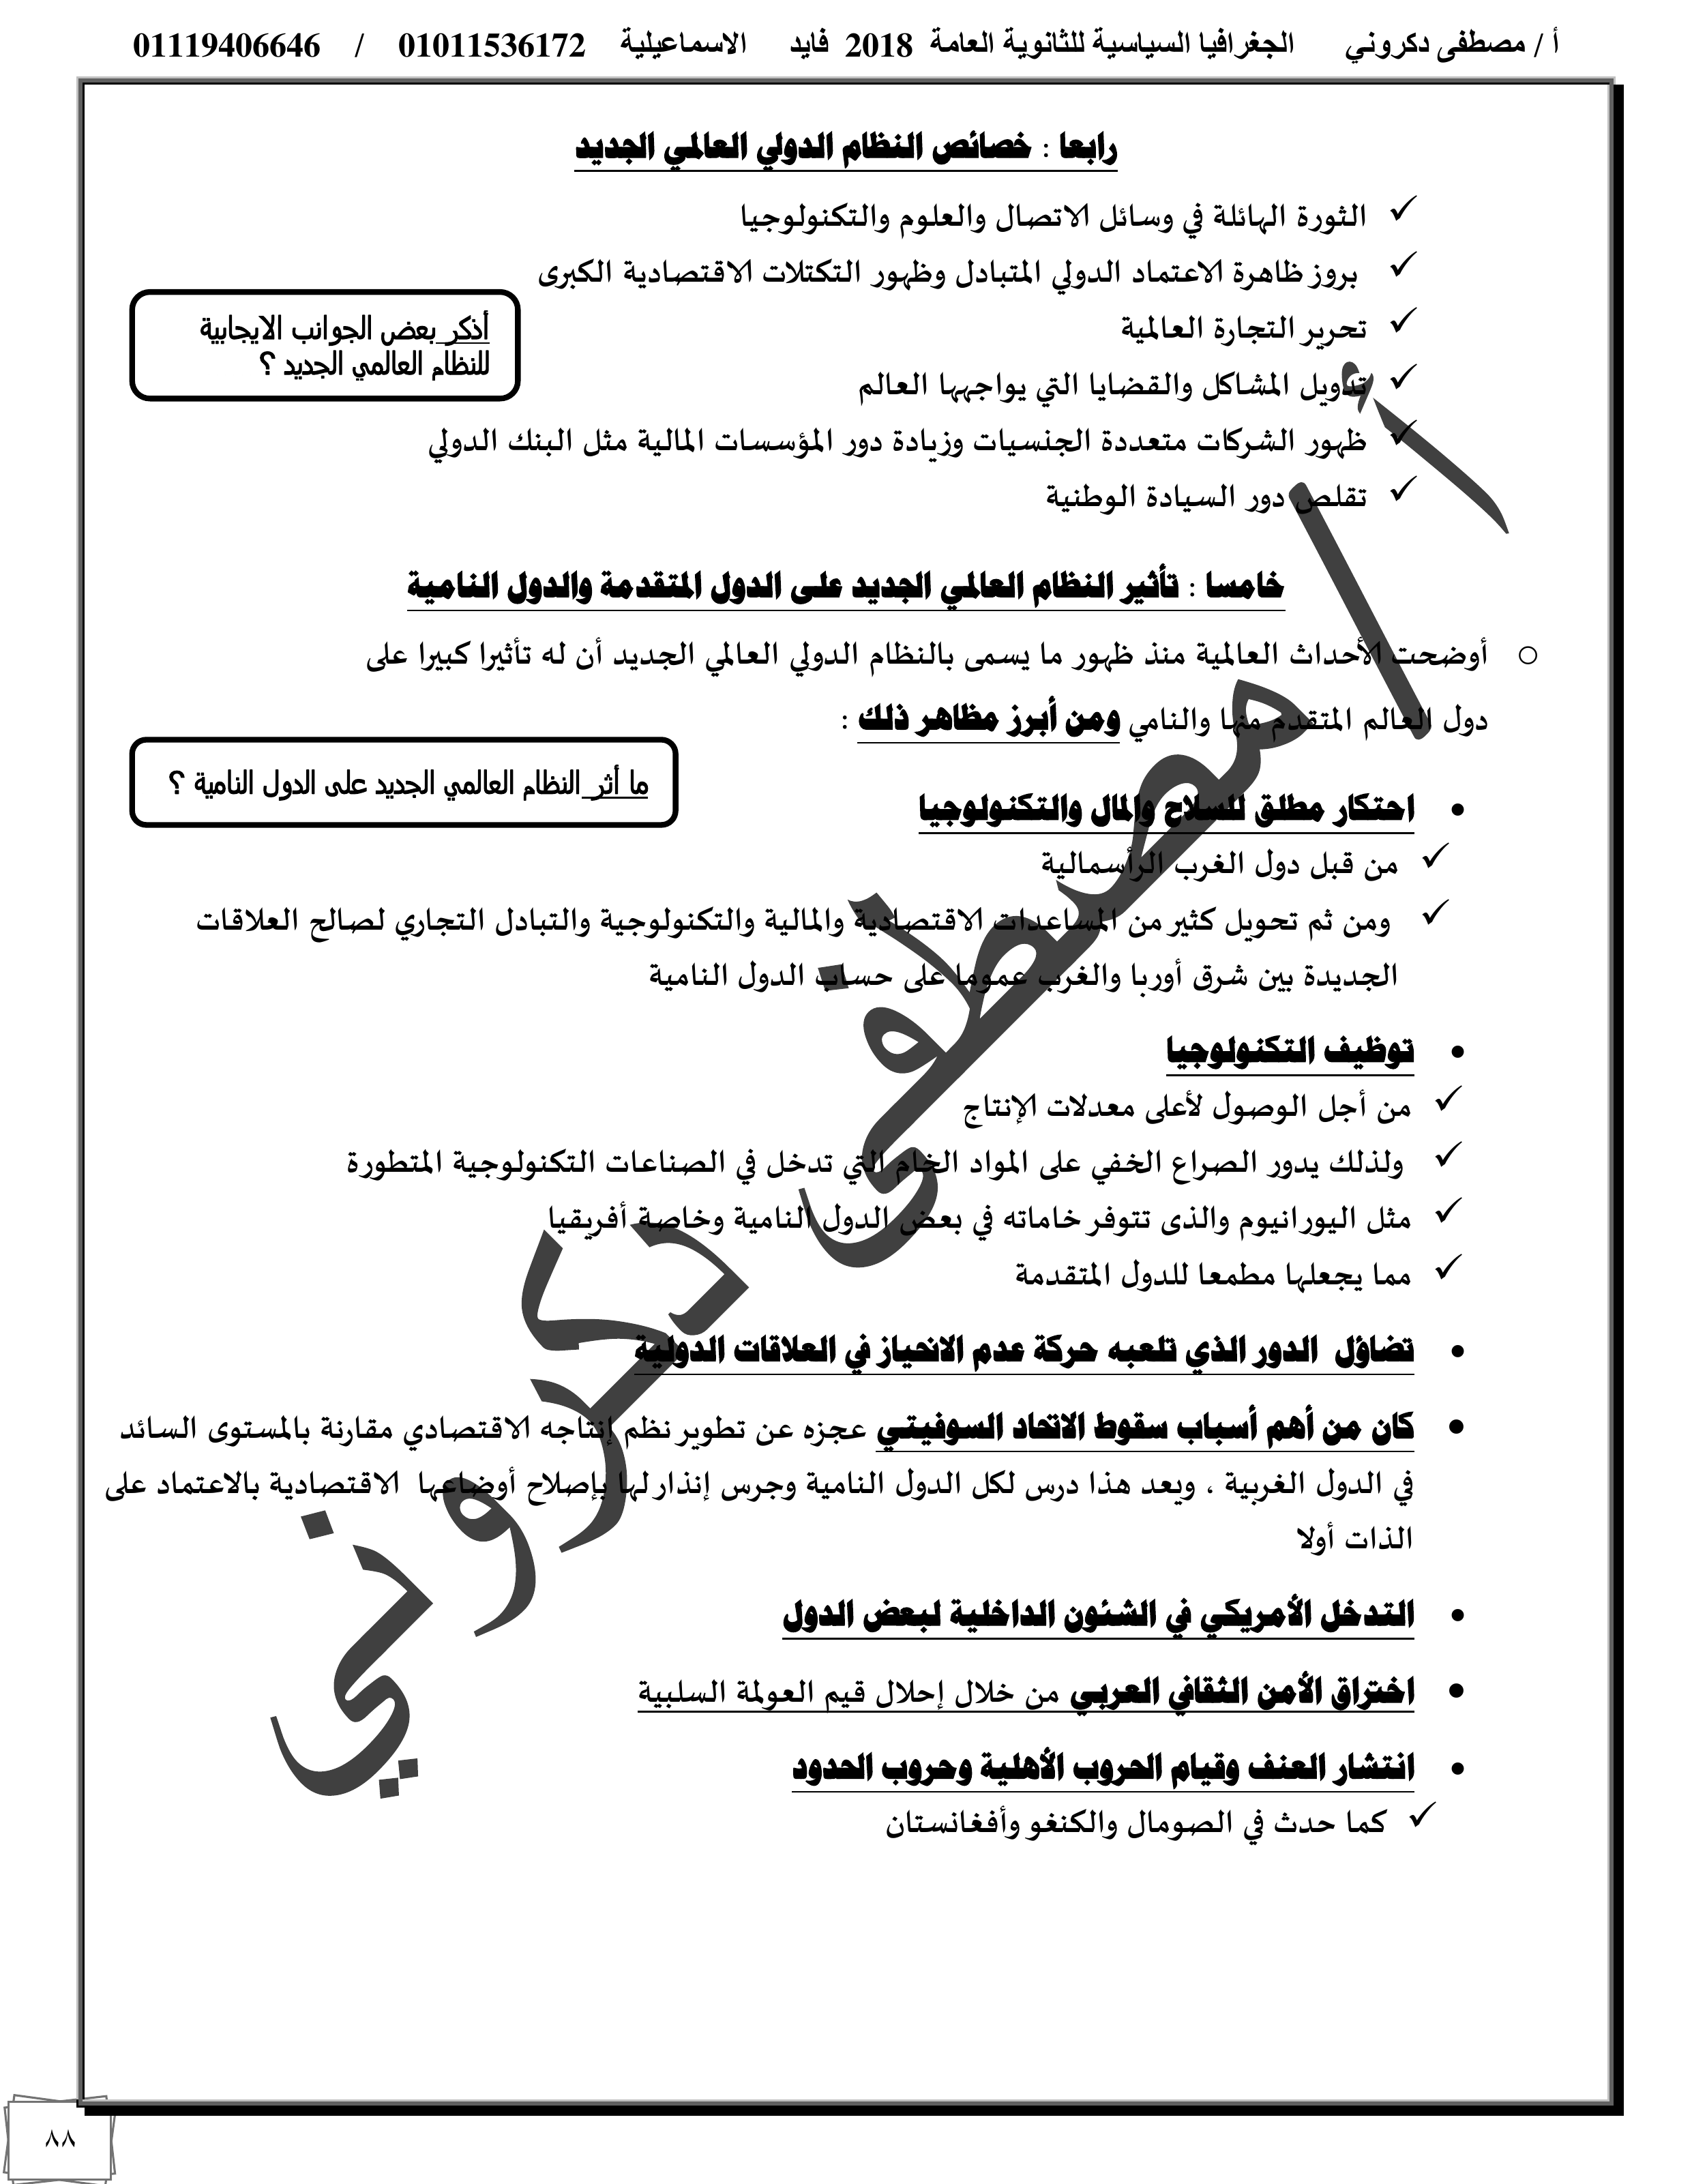 أ / مصطفى دكروني الجغرافيا السياسية للثانوية العامة 2018 فايد الاسماعيلية 01011536172 / 01119406646
رابعا : خصائص النظام الدولي العالمي الجديد
الثورة الهائلة في وسائل الاتصال والعلوم والتكنولوجيا
بروز ظاهرة الاعتماد الدولي المتبادل وظهور التكتلات الاقتصادية الكبرى
أذكر بعض الجوانب الايجابية
للنظام العالمي الجديد ؟
تحرير التجارة العالمية
تدويل المشاكل والقضايا التي يواجهها العالم
ظهور الشركات متعددة الجنسيات وزيادة دور المؤسسات المالية مثل البنك الدولي
تقلص دور السيادة الوطنية
خامسا : تأثير النظام العالمي الجديد على الدول المتقدمة والدول النامية
أوضحت الأحداث العالمية منذ ظهور ما يسمى بالنظام الدولي العالمي الجديد أن له تأثيرا كبيرا على
دول العالم المتقدم منها والنامي ومن أبرز مظاهر ذلك :
ما أثر النظام العالمي الجديد على الدول النامية ؟
احتكار مطلق للسلاح والمال والتكنولوجيا
من قبل دول الغرب الرأسمالية
ومن ثم تحويل كثير من المساعدات الاقتصادية والمالية والتكنولوجية والتبادل التجاري لصالح العلاقات
الجديدة بين شرق أوربا والغرب عموما على حساب الدول النامية
توظيف التكنولوجيا
من أجل الوصول لأعلى معدلات الإنتاج
ولذلك يدور الصراع الخفي على المواد الخام التي تدخل في الصناعات التكنولوجية المتطورة
مثل اليورانيوم والذى تتوفر خاماته في بعض الدول النامية وخاصة أفريقيا
مما يجعلها مطمعا للدول المتقدمة
تضاؤل الدور الذي تلعبه حركة عدم الانحياز في العلاقات الدولية
كان من أهم أسباب سقوط الاتحاد السوفيتي عجزه عن تطوير نظم إنتاجه الاقتصادي مقارنة بالمستوى السائد
في الدول الغربية ، ويعد هذا درس لكل الدول النامية وجرس إنذار لها بإصلاح أوضاعها الاقتصادية بالاعتماد على
الذات أولا
التدخل الأمريكي في الشئون الداخلية لبعض الدول
اختراق الأمن الثقافي العربي من خلال إحلال قيم العولمة السلبية
انتشار العنف وقيام الحروب الأهلية وحروب الحدود
كما حدث في الصومال والكنغو وأفغانستان
أ / مصطفى دكروني
٨٨